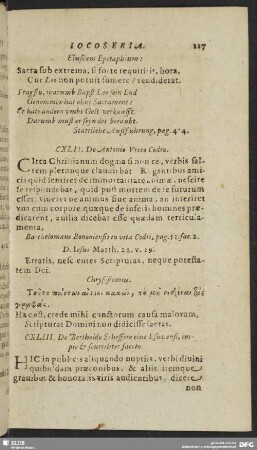 IOCOSERIA. 117
Eiusdem Epitaphium:
Sacra sub extrema, si forte requiritis, hora,
Cur Leo non potuit sumere? vendiderat.
Fragstu, warumb Bapst Leo sein End
Genommen hat ohne Sacrament:
Er hats andern umbs Gelt verkaufft.
Darumb must er seyn der beraubt.
Stattliche Außführung, pag. 4 4.
CXLII. De Antonio Vrceo Codro.
Circa Christianum dogma si non re, verbis sal-
tem plerumque claudicabat. Rogantibus ami-
cis quid sentiret de immortalitate animæ, nescire
se respondebat, quid post mortem de se futurum
esset. Viveret ne animus sine anima, an interiret
cum corpore, quæque de inferis homines præ-
dicarent, autlia dicebat esse quædam terricula-
menta.
Bartholomæus Bononiensis in vita Codri, pag. fac. 2.
D. Iesus Matth. 22. v. 29.
Erratis, nescientes Scripturas, neque potesta-
tem Dei.
Chrysostomus.
Hæc est, crede mihi cunctorum causa malorum,
Scripturas Domini non didicisse sacras.
CXLIII. De Bertholdo Scheffero cive Esuuensi, im-
piè & scurriliter faceto.
HIC in publicis aliquando nuptiis, verbi divini
quibusdam præconibus, & aliis itemque
gravibus & honoratis viris audientibus, dicere
non
SLUB